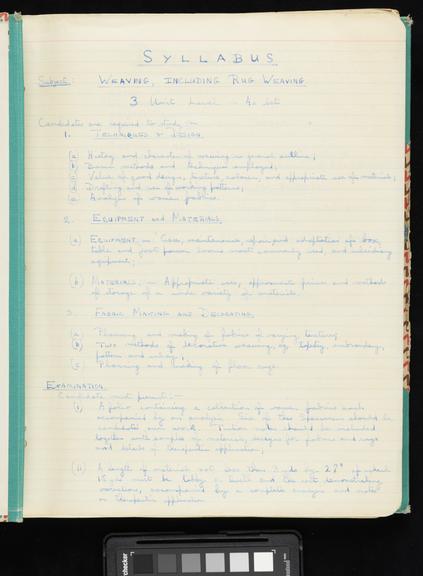 SYLLABUS
Subject: WEAVING, INCLUDING RUG WEAVING
3 Unit Level
Candidates are required to study :-
1. TECHNIQUES & DESIGN.
(a) History and character of weaving in general outline;
(b) Basic methods and techniques employed;
(c) Value of good design, texture, colour, and appropriate use of materials;
(d) Drafting and use of working patterns;
(e) Analysis of woven fabrics.
2. EQUIPMENT and MATERIALS.
(a) EQUIPMENT :- Care, maintenance, repair and adaptation of box,
table and foot power looms most commonly used and
equipment;
(b) MATERIALS :- Appropriate uses, approximate prices and methods
of storage of a wide variety of materials.
3. FABRIC MAKING AND DECORATING.
(a) Planning and making of fabrics of varying textures;
(b) Two methods of decorative weaving, eg tapestry, embroidery,
pattern and inlay;
(c) Planning and making of floor rugs.
EXAMINATION.
Candidate must present :-
(i) A folio containing a collection of woven fabrics each
accompanied by an analysis. Six of the specimens should be
candidates own work. Tuition notes should be included
together with samples of materials, designs for fabrics and rugs
and details of therapeutic application;
(ii) A length of material not less than 3 yds by 27" of which
must be
variations, accompanied by a complete analysis and notes
on therapeutic application
checker